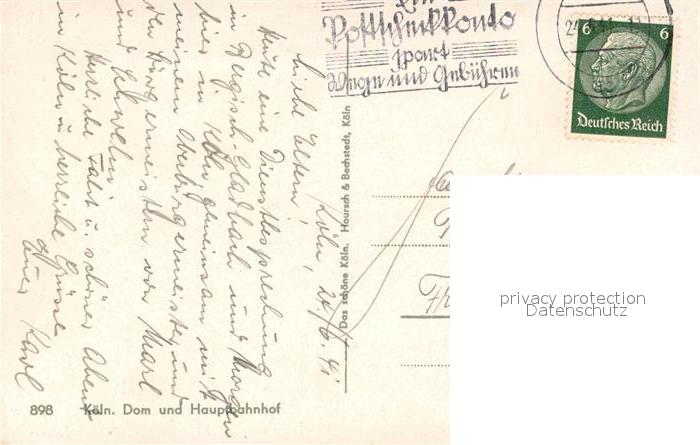 Ein
Postscheckkonto
spart
Wege und Gebühren
6 6
Deutsches Reich
Köln, 24/6.41
Liebe Eltern!
Heute eine Dienstbesprechung
in Bergisch-Gladbach und Morgen
hier in Köln gemeinsam mit
meinem Oberbürgermeister und
den Bürgermeistern von Marl
und
Herrliche Fahrt u. schöner Abend
in Köln u. herzliche Grüsse
Euer Karl
Das schöne Köln. Hoursch & Bechstedt, Köln
898 Köln. Dom und Hauptbahnhof
privacy protection
Datenschutz